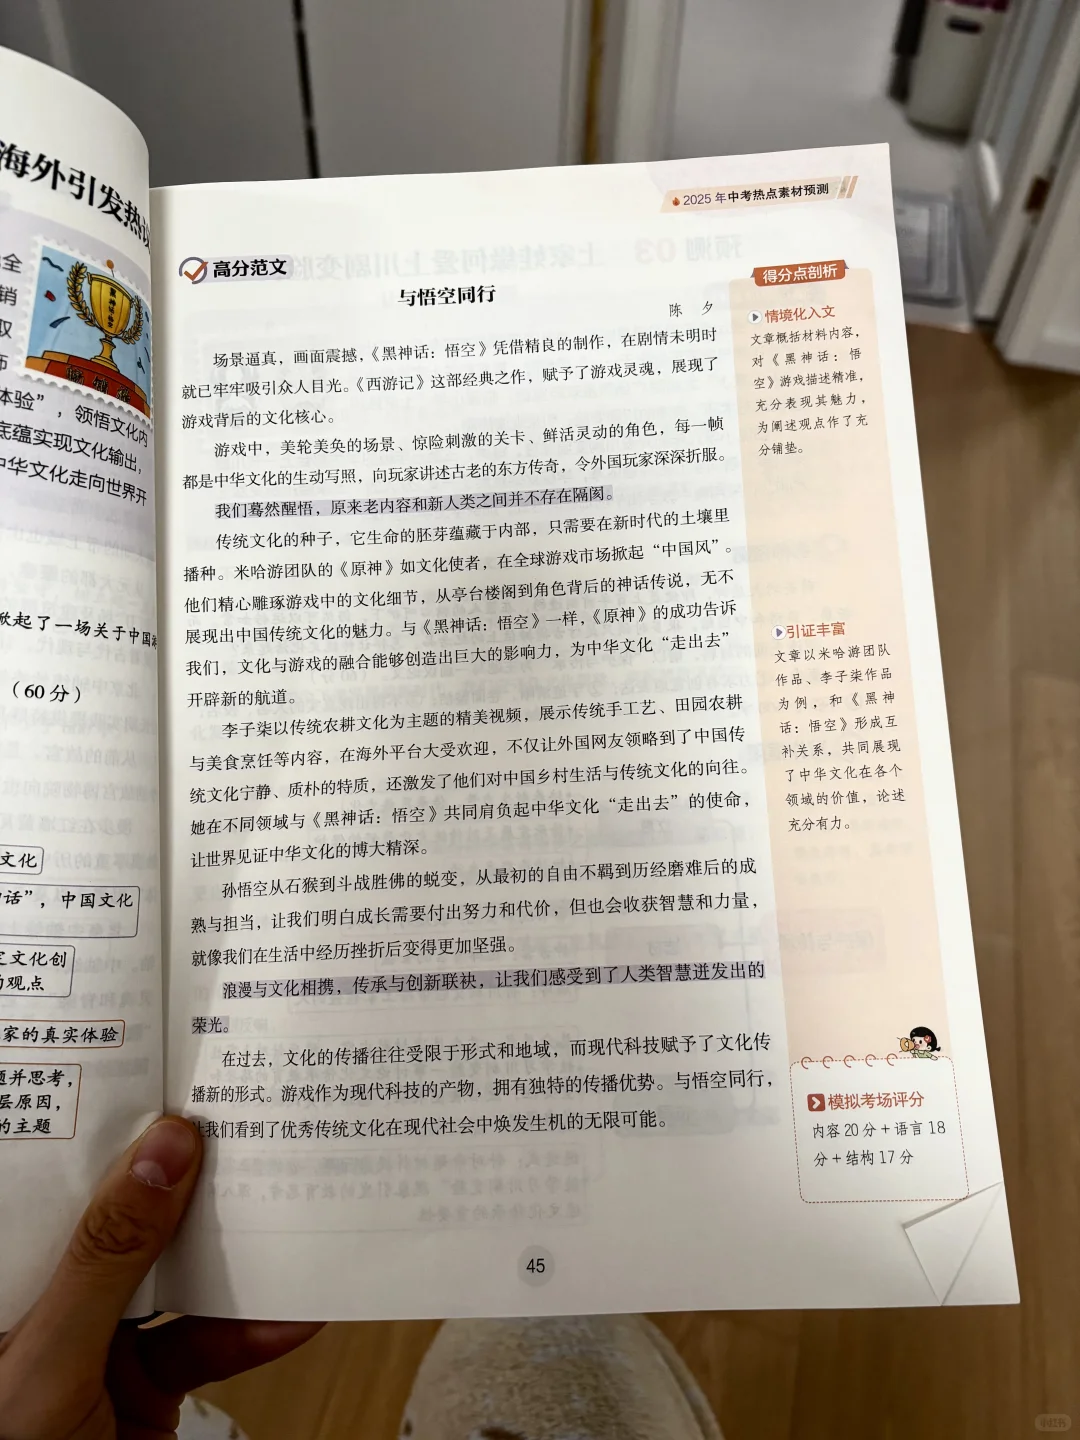 海外引发热议
全
销
取
师
体验”，领悟文化内
底蕴实现文化输出，
中华文化走向世界开
掀起了一场关于中国
（60分）
文化
话”，中国文化
定文化创
的观点
家的真实体验
题并思考，
层原因，
的主题
2025年中考热点素材预测
高分范文
与悟空同行
陈 夕
场景逼真，画面震撼，《黑神话：悟空》凭借精良的制作，在剧情未明时
就已牢牢吸引众人目光。《西游记》这部经典之作，赋予了游戏灵魂，展现了
游戏背后的文化核心。
游戏中，美轮美奂的场景、惊险刺激的关卡、鲜活灵动的角色，每一帧
都是中华文化的生动写照，向玩家讲述古老的东方传奇，令外国玩家深深折服。
我们蓦然醒悟，原来老内容和新人类之间并不存在隔阂。
传统文化的种子，它生命的胚芽蕴藏于内部，只需要在新时代的土壤里
播种。米哈游团队的《原神》如文化使者，在全球游戏市场掀起“中国风”。
他们精心雕琢游戏中的文化细节，从亭台楼阁到角色背后的神话传说，无不
展现出中国传统文化的魅力。与《黑神话：悟空》一样，《原神》的成功告诉
我们，文化与游戏的融合能够创造出巨大的影响力，为中华文化“走出去”
开辟新的航道。
李子柒以传统农耕文化为主题的精美视频，展示传统手工艺、田园农耕
与美食烹饪等内容，在海外平台大受欢迎，不仅让外国网友领略到了中国传
统文化宁静、质朴的特质，还激发了他们对中国乡村生活与传统文化的向往。
她在不同领域与《黑神话：悟空》共同肩负起中华文化“走出去”的使命，
让世界见证中华文化的博大精深。
孙悟空从石猴到斗战胜佛的蜕变，从最初的自由不羁到历经磨难后的成
熟与担当，让我们明白成长需要付出努力和代价，但也会收获智慧和力量，
就像我们在生活中经历挫折后变得更加坚强。
浪漫与文化相携，传承与创新联袂，让我们感受到了人类智慧迸发出的
荣光。
在过去，文化的传播往往受限于形式和地域，而现代科技赋予了文化传
播新的形式。游戏作为现代科技的产物，拥有独特的传播优势。与悟空同行，
让我们看到了优秀传统文化在现代社会中焕发生机的无限可能。
得分点剖析
情境化入文
文章概括材料内容，
对《黑神话：悟
空》游戏描述精准，
充分表现其魅力，
为阐述观点作了充
分铺垫。
引证丰富
文章以米哈游团队
作品、李子柒作品
为例，和《黑神
话：悟空》形成互
补关系，共同展现
了中华文化在各个
领域的价值，论述
充分有力。
模拟考场评分
内容20分+语言18
分+结构17分
45
小红书